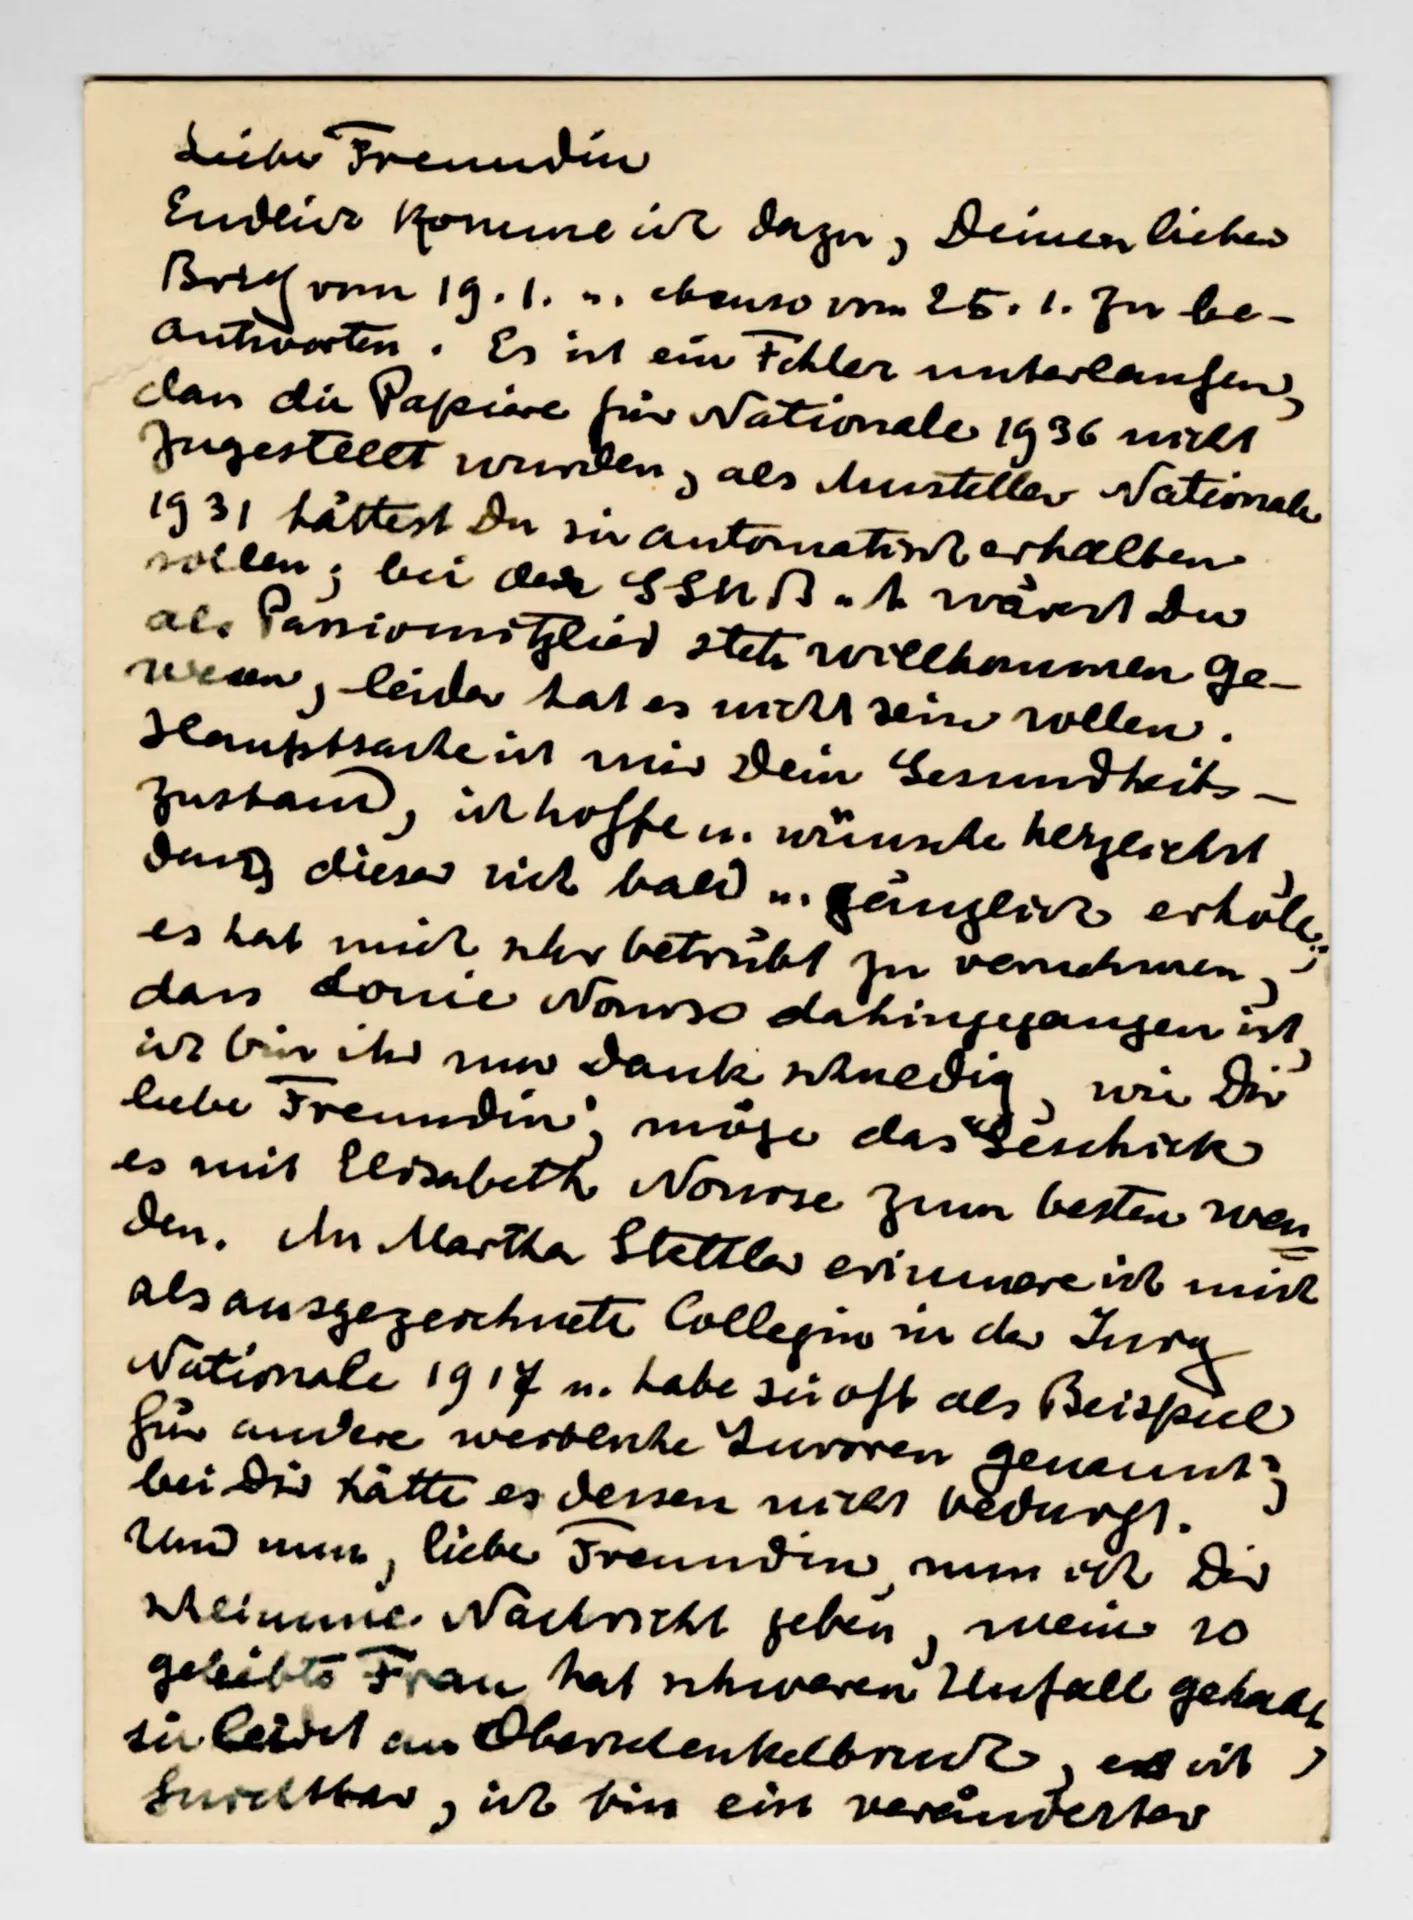 Liebe Freundin
Endlich komme ich dazu, Deinen lieben
Brief vom 19.1. u. ebenso vom 25.1. zu be-
antworten. Es ist ein Fehler unterlaufen,
dass die Papiere für Nationale 1936 nicht
zugestellt wurden, als Aussteller Nationale
1931 hättest Du sie automatisch erhalten
sollen; bei der wärest Du
als Passivmitglied stets willkommen ge-
wesen, leider hat es nicht sein sollen.
Hauptsache ist mir Dein Gesundheits-
zustand, ich hoffe u. wünsche herzlichst,
dass dieser sich bald u. gänzlich erhole;
es hat mich sehr betrübt zu vernehmen,
dass Louise Nourse dahingegangen ist,
ich bin ihr nur Dank schuldig, wie Dir
liebe Freundin; möge das Geschick
es mit Elisabeth Nourse zum besten wen
den. An Martha Stettler erinnere ich mich
als ausgezeichnete Collegin in der Jury
Nationale 1917 u. habe sie oft als Beispiel
für andere weibliche Juroren genannt;
bei Dir hätte es dessen nicht bedurft.
Und nun, liebe Freundin, muss ich Dir
schlimme Nachricht geben, meine so
geliebte Frau hat schweren Unfall gehabt,
sie leidet an Oberschenkelbruch, es ist
furchtbar, ich bin ein veränderter